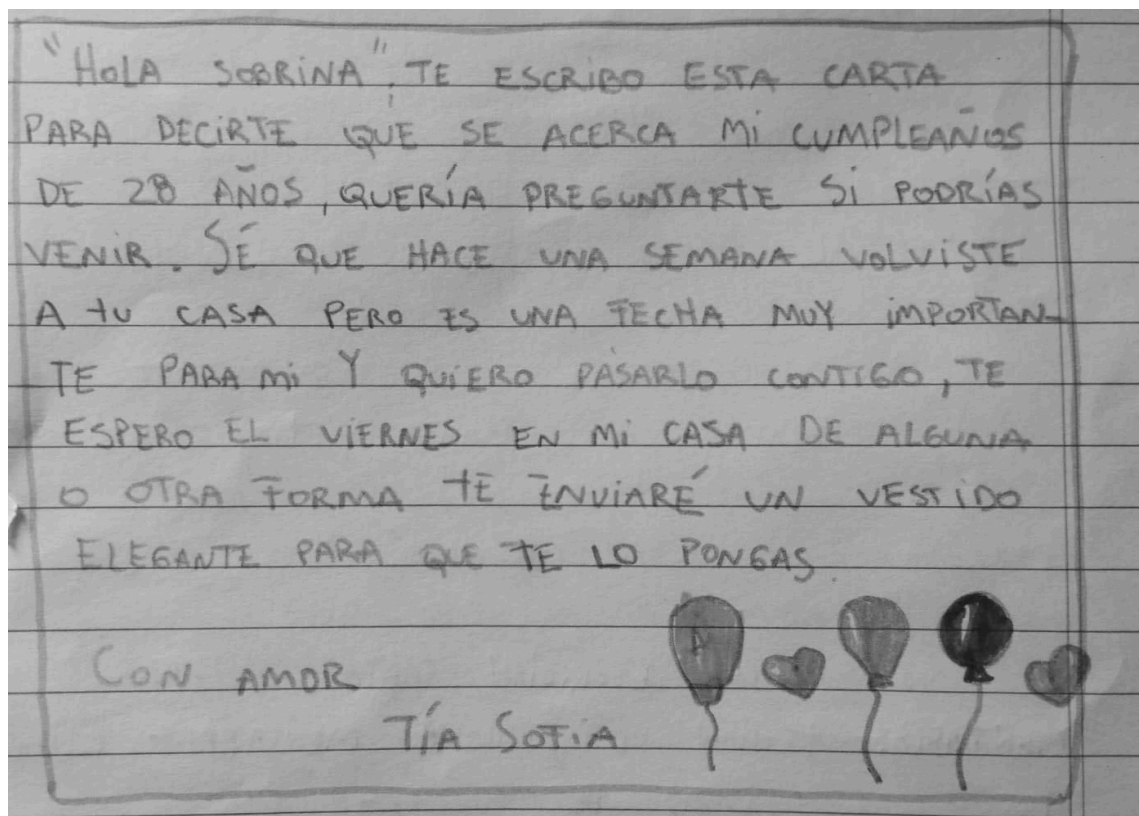 "HOLA SOBRINA", TE ESCRIBO ESTA CARTA
PARA DECIRTE QUE SE ACERCA MI CUMPLEAÑOS
DE 28 AÑOS, QUERÍA PREGUNTARTE SI PODRÍAS
VENIR. SÉ QUE HACE UNA SEMANA VOLVISTE
A tU CASA PERO ES UNA FECHA MUY IMPORTAN-
TE PARA Mi Y QUIERO PASARLO CONTIGO, TE
ESPERO EL VIERNES EN Mi CASA DE ALGUNA
O OTRA FORMA TE ENVIARÉ UN VESTIDO
ELEGANTE PARA QUE TE LO PONGAS.
CON AMOR
TÍA SOFiA